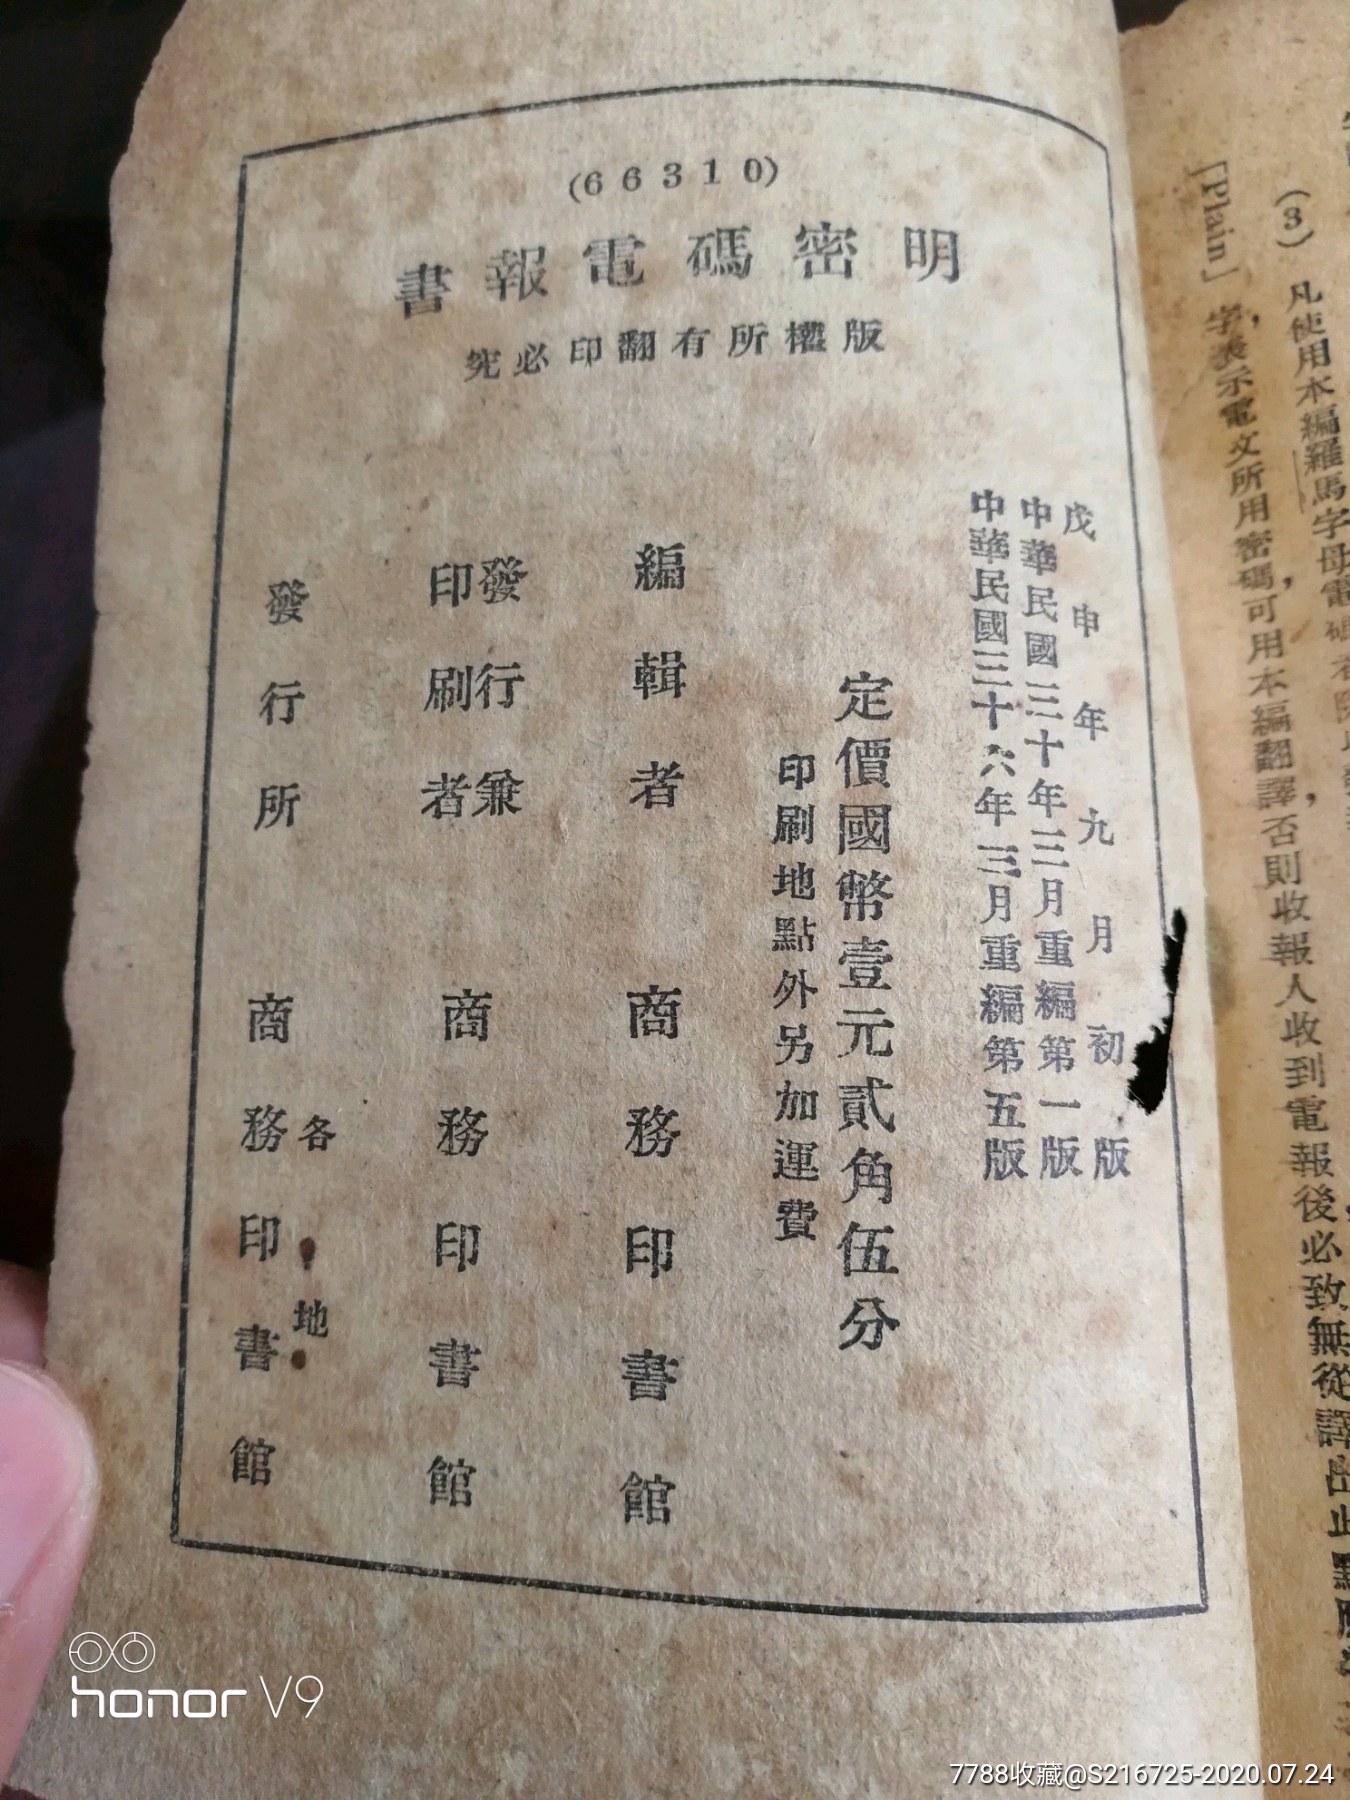 (66310)
明密碼電報書
版權所有翻印必究
戊申年九月初版
中華民國三十年三月重編第一版
中華民國三十六年三月重編第五版
定價國幣壹元貳角伍分
印刷地點外另加運費
編輯者 商務印書館
發行兼
印刷者 商務印書館
各地
發行所 商務印書館
(3) 凡使用本編羅馬字母電碼者
[Plain] 字，表示電文所用密碼，可用本編翻譯，否則收報人收到電報後必致無從譯出此點應
honor V9
7788收藏@S216725-2020.07.24